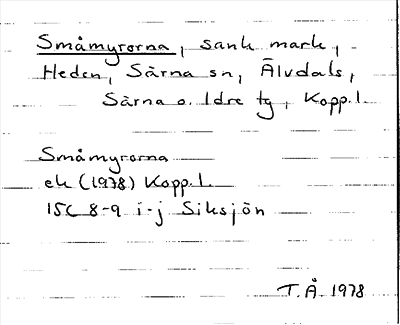 Småmyrorna, sank mark,
Heden, Särna sn, Älvdals,
Särna o. Idre tg, Kopp.l.
Småmyrorna
ek (1978) Kopp.l.
15C 8-9 i-j Siksjön
T.Å. 1978